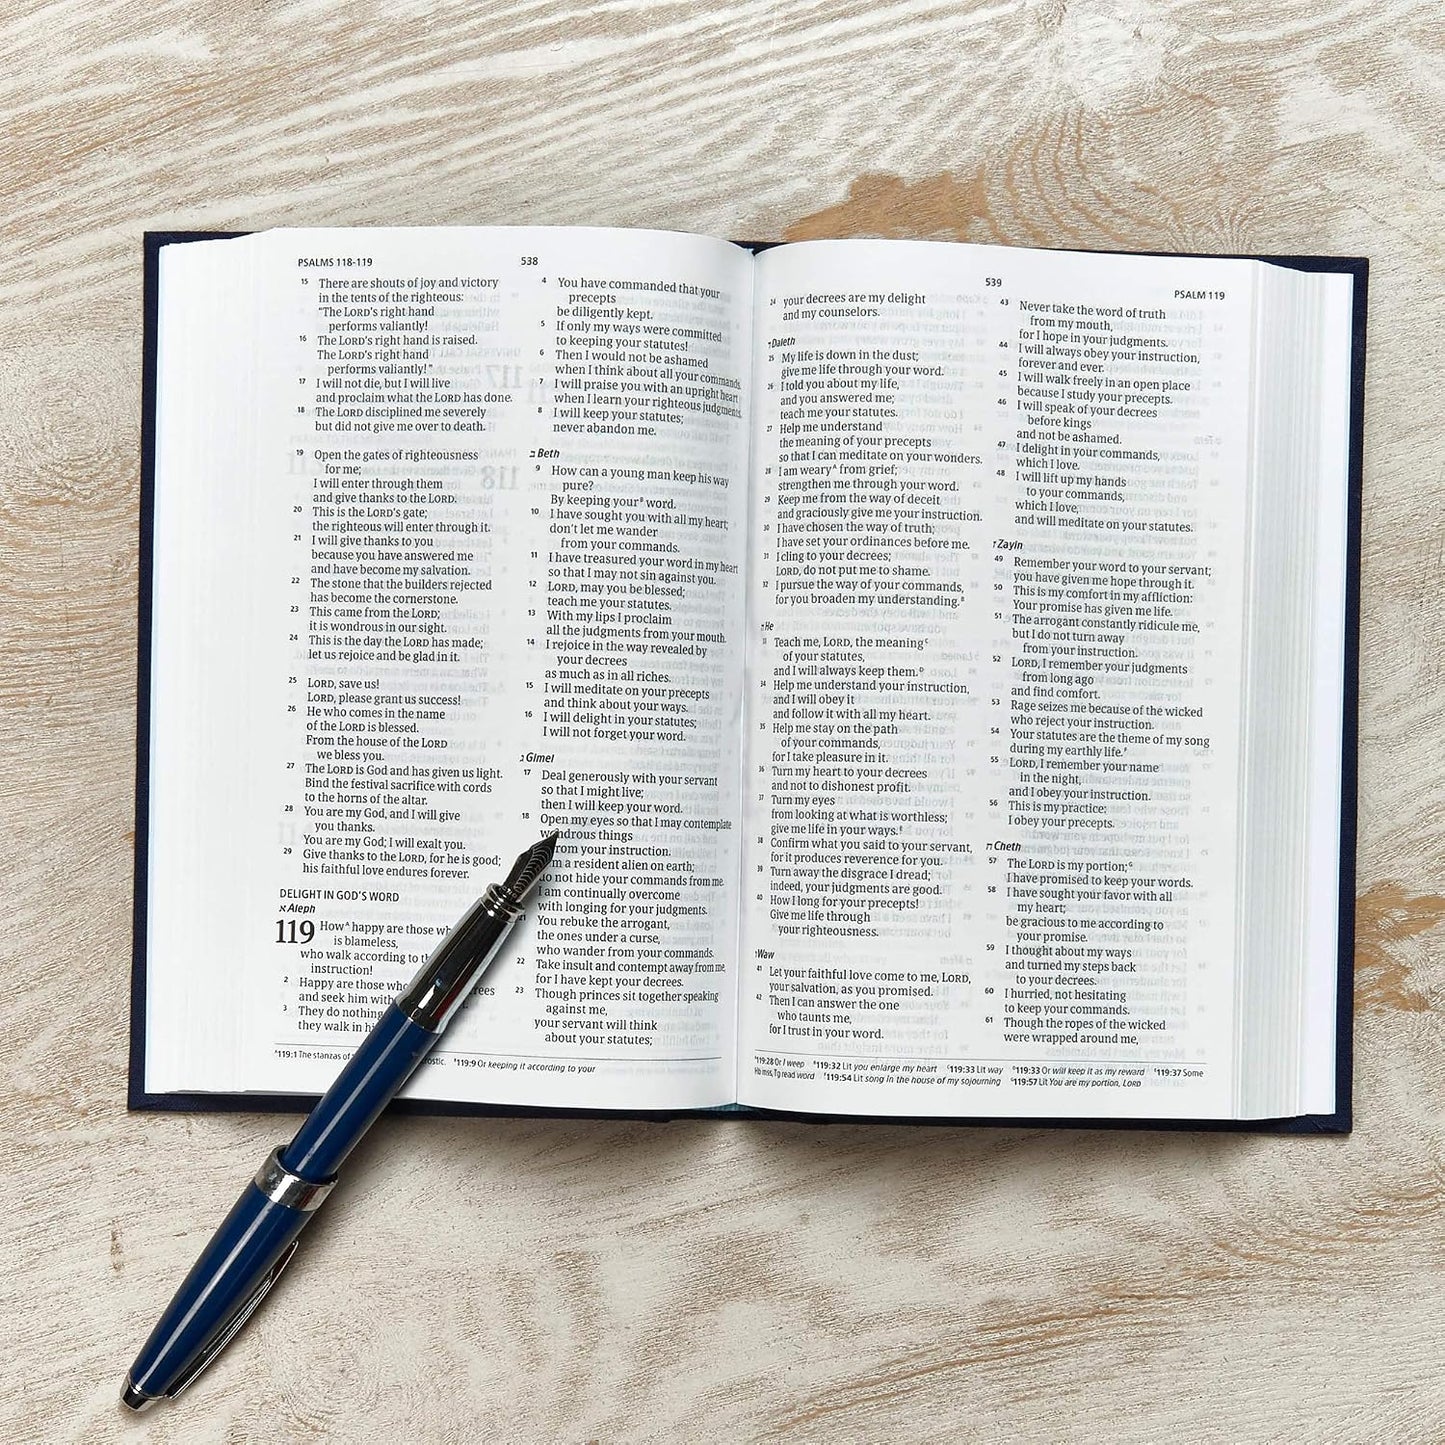 PSALMS 118-119
538
15 There are shouts of joy and victory
in the tents of the righteous:
“The LORD’s right hand
performs valiantly!
16 The LORD’s right hand is raised.
The LORD’s right hand
performs valiantly!”
17 I will not die, but I will live
and proclaim what the LORD has done.
18 The LORD disciplined me severely
but did not give me over to death.
19 Open the gates of righteousness
for me;
I will enter through them
and give thanks to the LORD.
20 This is the LORD’s gate;
the righteous will enter through it.
21 I will give thanks to you
because you have answered me
and have become my salvation.
22 The stone that the builders rejected
has become the cornerstone.
23 This came from the LORD;
it is wondrous in our sight.
24 This is the day the LORD has made;
let us rejoice and be glad in it.
25 LORD, save us!
LORD, please grant us success!
26 He who comes in the name
of the LORD is blessed.
From the house of the LORD
we bless you.
27 The LORD is God and has given us light.
Bind the festival sacrifice with cords
to the horns of the altar.
28 You are my God, and I will give
you thanks.
You are my God; I will exalt you.
29 Give thanks to the LORD, for he is good;
his faithful love endures forever.
DELIGHT IN GOD’S WORD
א Aleph
119 How A happy are those
is blameless,
who walk according to
instruction!
2 Happy are those
and seek him
3 They do nothing
they walk in
4 You have commanded that your
precepts
be diligently kept.
5 If only my ways were committed
to keeping your statutes!
6 Then I would not be ashamed
when I think about all your commands.
7 I will praise you with an upright heart
when I learn your righteous judgments.
8 I will keep your statutes;
never abandon me.
ב Beth
9 How can a young man keep his way
pure?
By keeping your B word.
10 I have sought you with all my heart;
don’t let me wander
from your commands.
11 I have treasured your word in my heart
so that I may not sin against you.
12 LORD, may you be blessed;
teach me your statutes.
13 With my lips I proclaim
all the judgments from your mouth.
14 I rejoice in the way revealed by
your decrees
as much as in all riches.
15 I will meditate on your precepts
and think about your ways.
16 I will delight in your statutes;
I will not forget your word.
ג Gimel
17 Deal generously with your servant
so that I might live;
then I will keep your word.
18 Open my eyes so that I may contemplate
wondrous things
from your instruction.
a resident alien on earth;
do not hide your commands from me.
I am continually overcome
with longing for your judgments.
21 You rebuke the arrogant,
the ones under a curse,
who wander from your commands.
22 Take insult and contempt away from me,
for I have kept your decrees.
23 Though princes sit together speaking
against me,
your servant will think
about your statutes;
A 119:1 The stanzas of B 119:9 Or keeping it according to your
539
PSALM 119
24 your decrees are my delight
and my counselors.
ד Daleth
25 My life is down in the dust;
give me life through your word.
26 I told you about my life,
and you answered me;
teach me your statutes.
27 Help me understand
the meaning of your precepts
so that I can meditate on your wonders.
28 I am weary A from grief;
strengthen me through your word.
29 Keep me from the way of deceit
and graciously give me your instruction.
30 I have chosen the way of truth;
I have set your ordinances before me.
31 I cling to your decrees;
LORD, do not put me to shame.
32 I pursue the way of your commands,
for you broaden my understanding. B
ה He
33 Teach me, LORD, the meaning C
of your statutes,
and I will always keep them. D
34 Help me understand your instruction,
and I will obey it
and follow it with all my heart.
35 Help me stay on the path
of your commands,
for I take pleasure in it.
36 Turn my heart to your decrees
and not to dishonest profit.
37 Turn my eyes
from looking at what is worthless;
give me life in your ways. E
38 Confirm what you said to your servant,
for it produces reverence for you.
39 Turn away the disgrace I dread;
indeed, your judgments are good.
40 How I long for your precepts!
Give me life through
your righteousness.
ו Waw
41 Let your faithful love come to me, LORD,
your salvation, as you promised.
42 Then I can answer the one
who taunts me,
for I trust in your word.
43 Never take the word of truth
from my mouth,
for I hope in your judgments.
44 I will always obey your instruction,
forever and ever.
45 I will walk freely in an open place
because I study your precepts.
46 I will speak of your decrees
before kings
and not be ashamed.
47 I delight in your commands,
which I love.
48 I will lift up my hands
to your commands,
which I love,
and will meditate on your statutes.
ז Zayin
49 Remember your word to your servant;
you have given me hope through it.
50 This is my comfort in my affliction:
Your promise has given me life.
51 The arrogant constantly ridicule me,
but I do not turn away
from your instruction.
52 LORD, I remember your judgments
from long ago
and find comfort.
53 Rage seizes me because of the wicked
who reject your instruction.
54 Your statutes are the theme of my song
during my earthly life. F
55 LORD, I remember your name
in the night,
and I obey your instruction.
56 This is my practice:
I obey your precepts.
ח Cheth
57 The LORD is my portion; G
I have promised to keep your words.
58 I have sought your favor with all
my heart;
be gracious to me according to
your promise.
59 I thought about my ways
and turned my steps back
to your decrees.
60 I hurried, not hesitating
to keep your commands.
61 Though the ropes of the wicked
were wrapped around me,
A 119:28 Or I weep B 119:32 Lit you enlarge my heart C 119:33 Lit way D 119:33 Or will keep it as my reward E 119:37 Some
Hb mss, Tg read word F 119:54 Lit song in the house of my sojourning G 119:57 Lit You are my portion, LORD